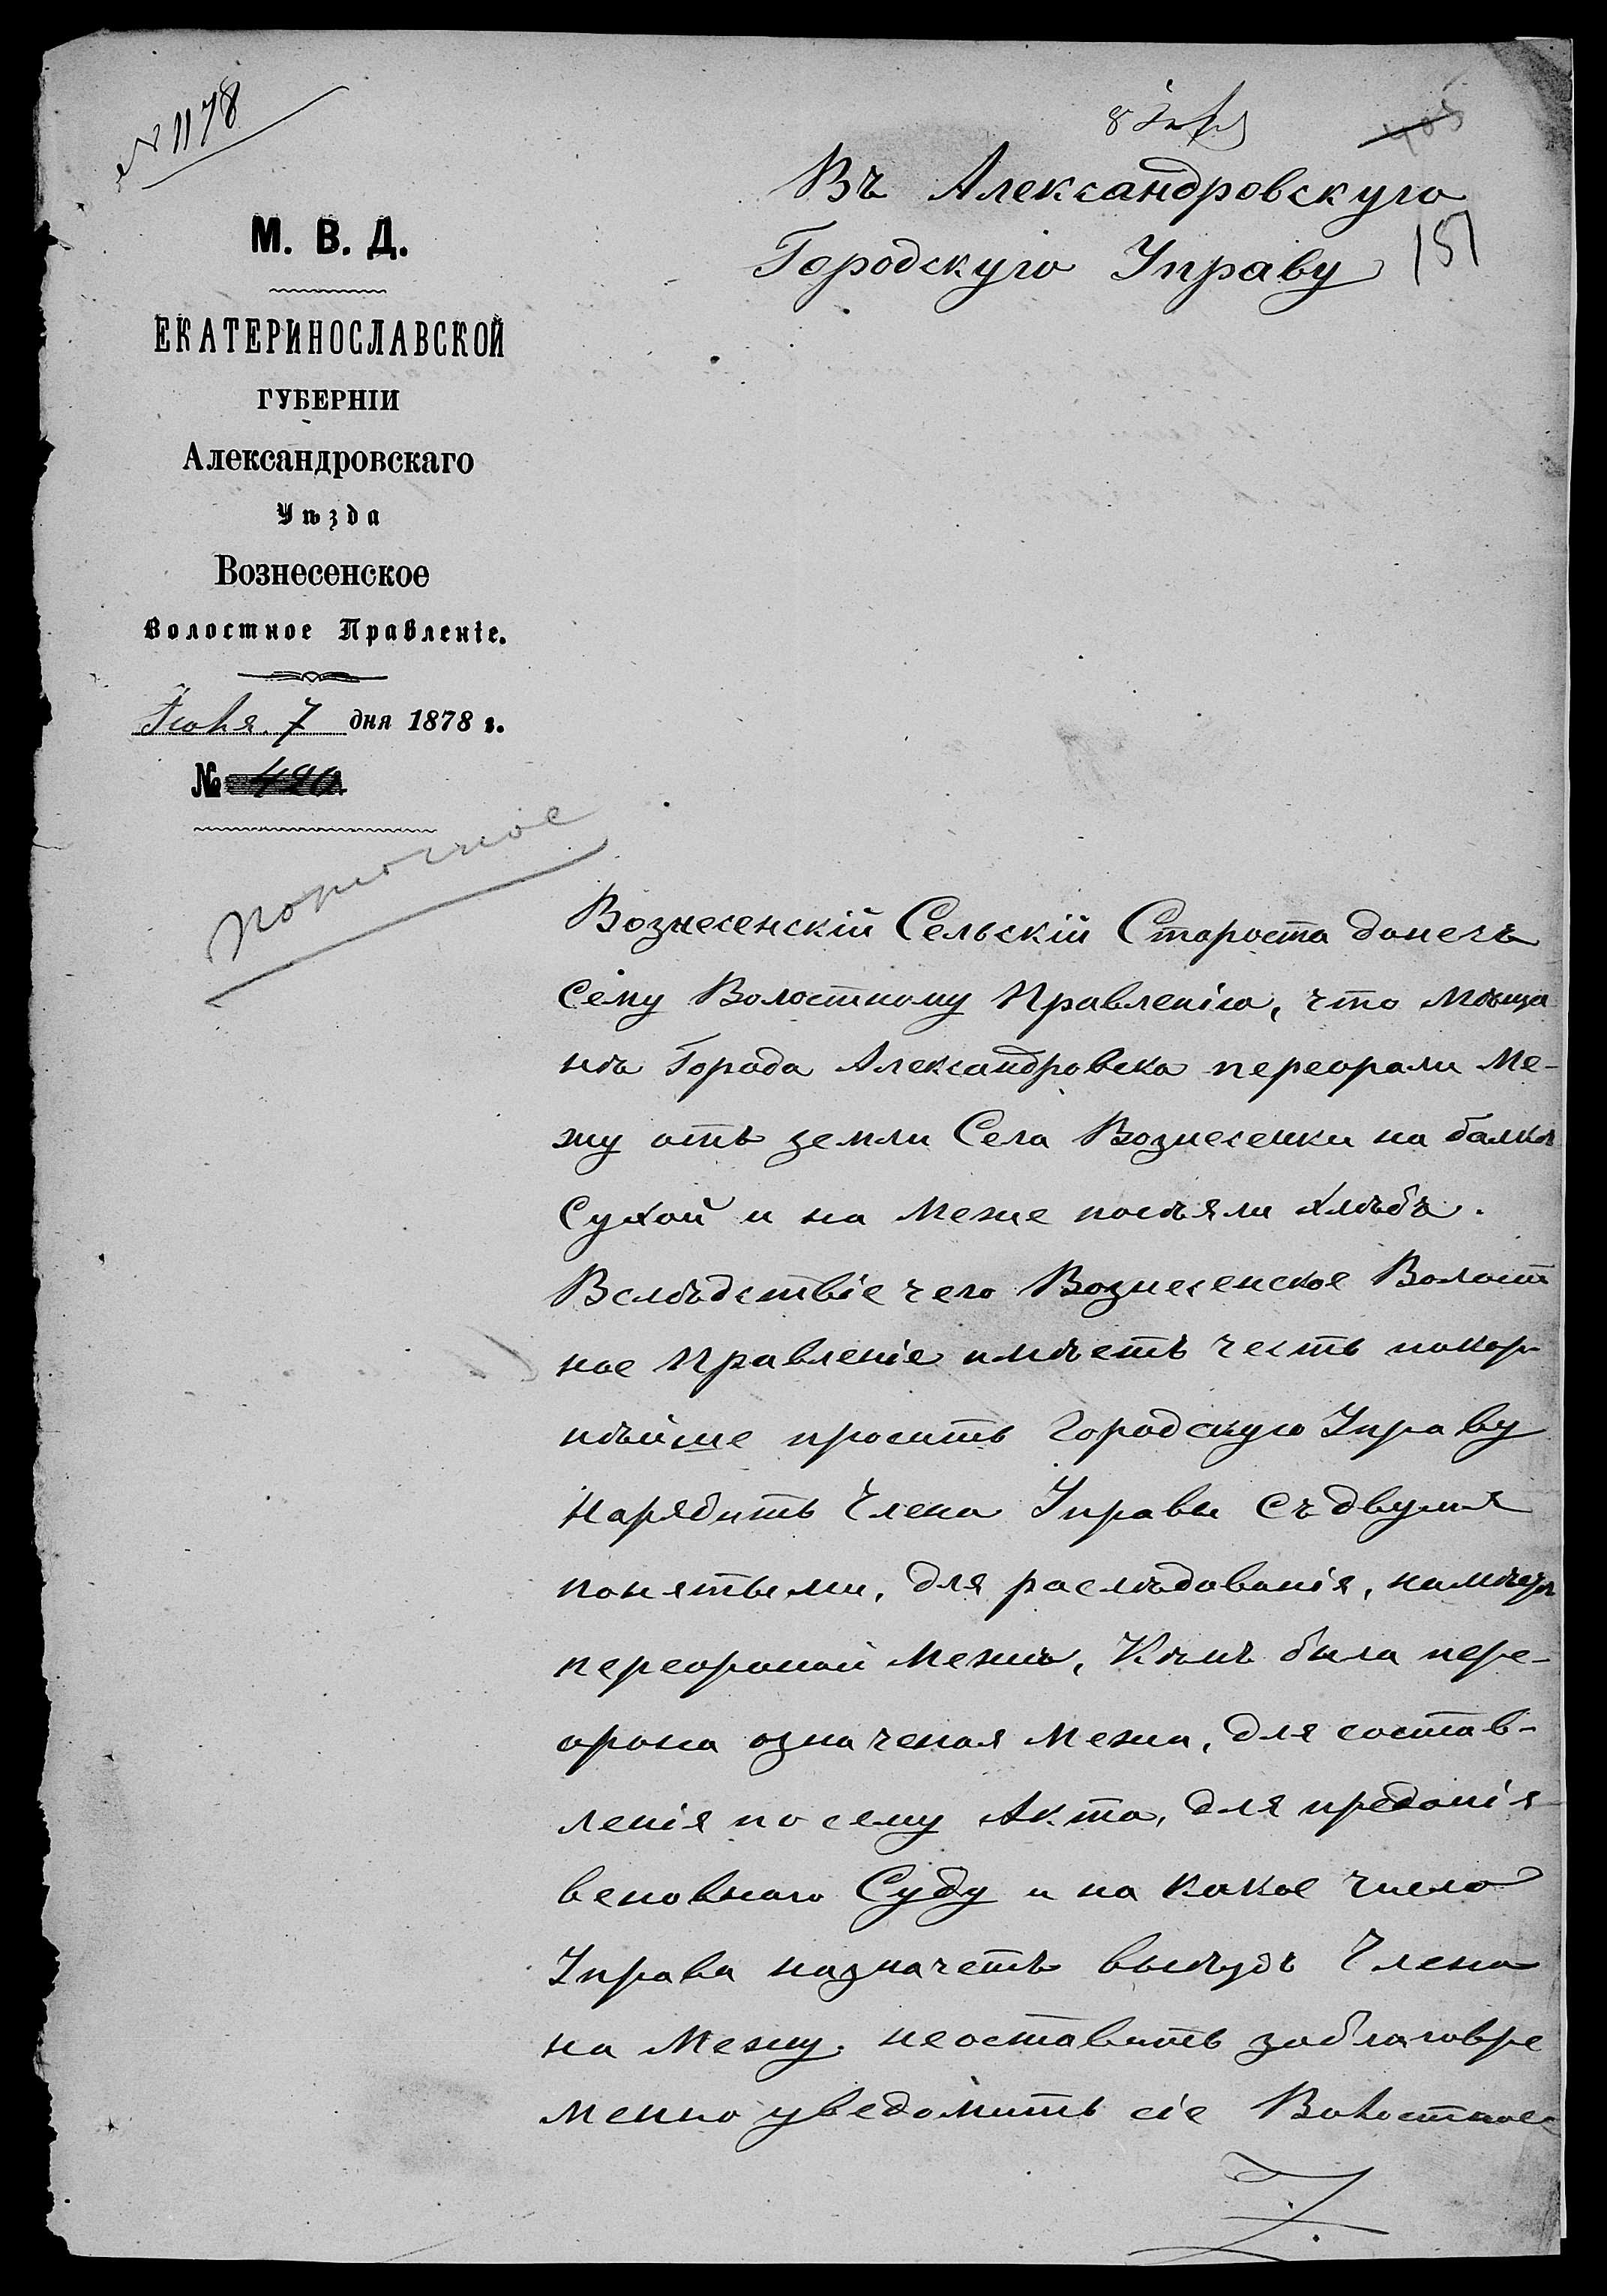 № 1178
405
Въ Александровскую
Городскую Управу
151
М. В. Д.
ЕКАТЕРИНОСЛАВСКОЙ
ГУБЕРНІИ
Александровскаго
Уѣзда
Вознесенское
Волостное Правленіе.
Июня 7 дня 1878 г.
№ 420
Вознесенскій Сельскій Староста донесъ
сему Волостному Правленію, что мѣща
нѣ Города Александровска переорали Ме-
жу отъ земли Села Вознесенки на балкѣ
Сухой и на Меже посѣяли хлѣбъ.
Вслѣдствіе чего Вознесенское Волост
ное Правленіе имѣетъ честь покор
нѣйше просить Городскую Управу
нарядить Члена Управы съ двумя
понятыми, для расмѣдованія, на мѣстѣ
переораной Межи, Кѣмъ была пере-
орана означеная Межа, для состав-
ленія по сему Акта, для преданія
веновнаго Суду и на какое число
Управа назначетъ выѣздъ Члена
на Межу. неоставить заблаговре
менно уведомить сіе Волостное